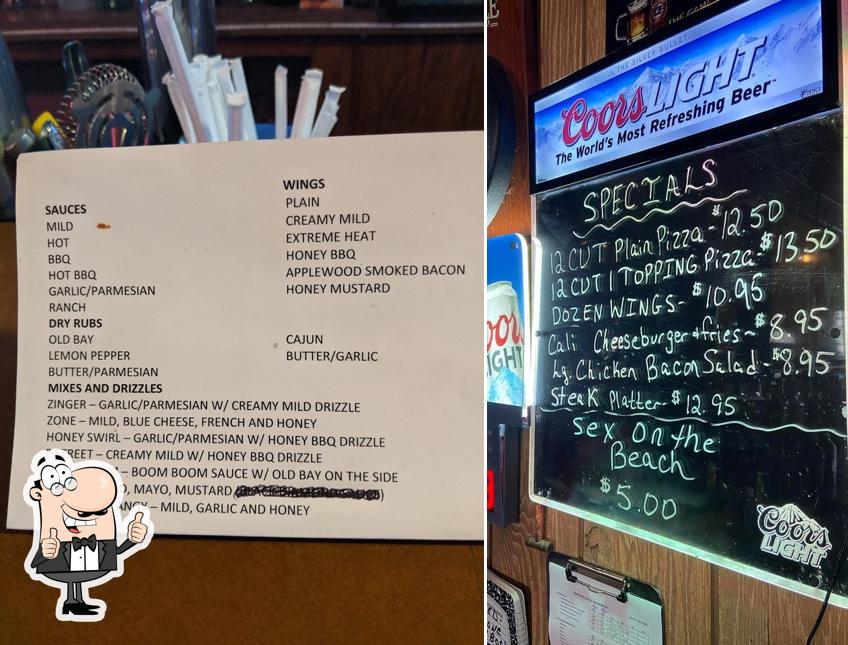 WINGS
SAUCES
PLAIN
MILD
CREAMY MILD
HOT
EXTREME HEAT
BBQ
HONEY BBQ
HOT BBQ
APPLEWOOD SMOKED BACON
GARLIC/PARMESIAN
HONEY MUSTARD
RANCH
DRY RUBS
OLD BAY
CAJUN
LEMON PEPPER
BUTTER/GARLIC
BUTTER/PARMESIAN
MIXES AND DRIZZLES
ZINGER – GARLIC/PARMESIAN W/ CREAMY MILD DRIZZLE
ZONE – MILD, BLUE CHEESE, FRENCH AND HONEY
HONEY SWIRL – GARLIC/PARMESIAN W/ HONEY BBQ DRIZZLE
REET – CREAMY MILD W/ HONEY BBQ DRIZZLE
– BOOM BOOM SAUCE W/ OLD BAY ON THE SIDE
, MAYO, MUSTARD
– MILD, GARLIC AND HONEY
THE GAME
THE SILVER BULLET
Coors LIGHT
The World's Most Refreshing Beer
SPECIALS
12 CUT Plain Pizza - $12.50
12 CUT 1 TOPPING Pizza - $13.50
DOZEN WINGS - $10.95
Cali Cheeseburger + fries - $8.95
Lg. Chicken Bacon Salad - $8.95
Steak Platter - $12.95
Sex On the
Beach
$5.00
Coors
LIGHT